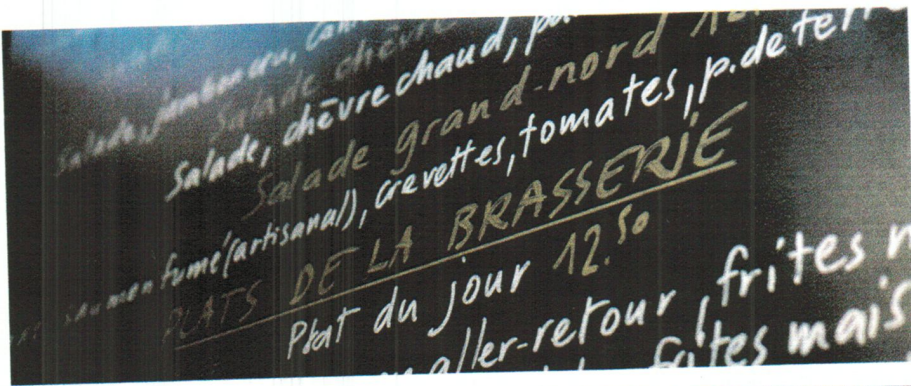 salade, jambon cru,
Salade chèvre
Salade, chèvre chaud,
Salade grand-nord
saumon fumé (artisanal), crevettes, tomates, p. de terre
PLATS DE LA BRASSERIE
Plat du jour 12.50
aller-retour, frites
frites mais